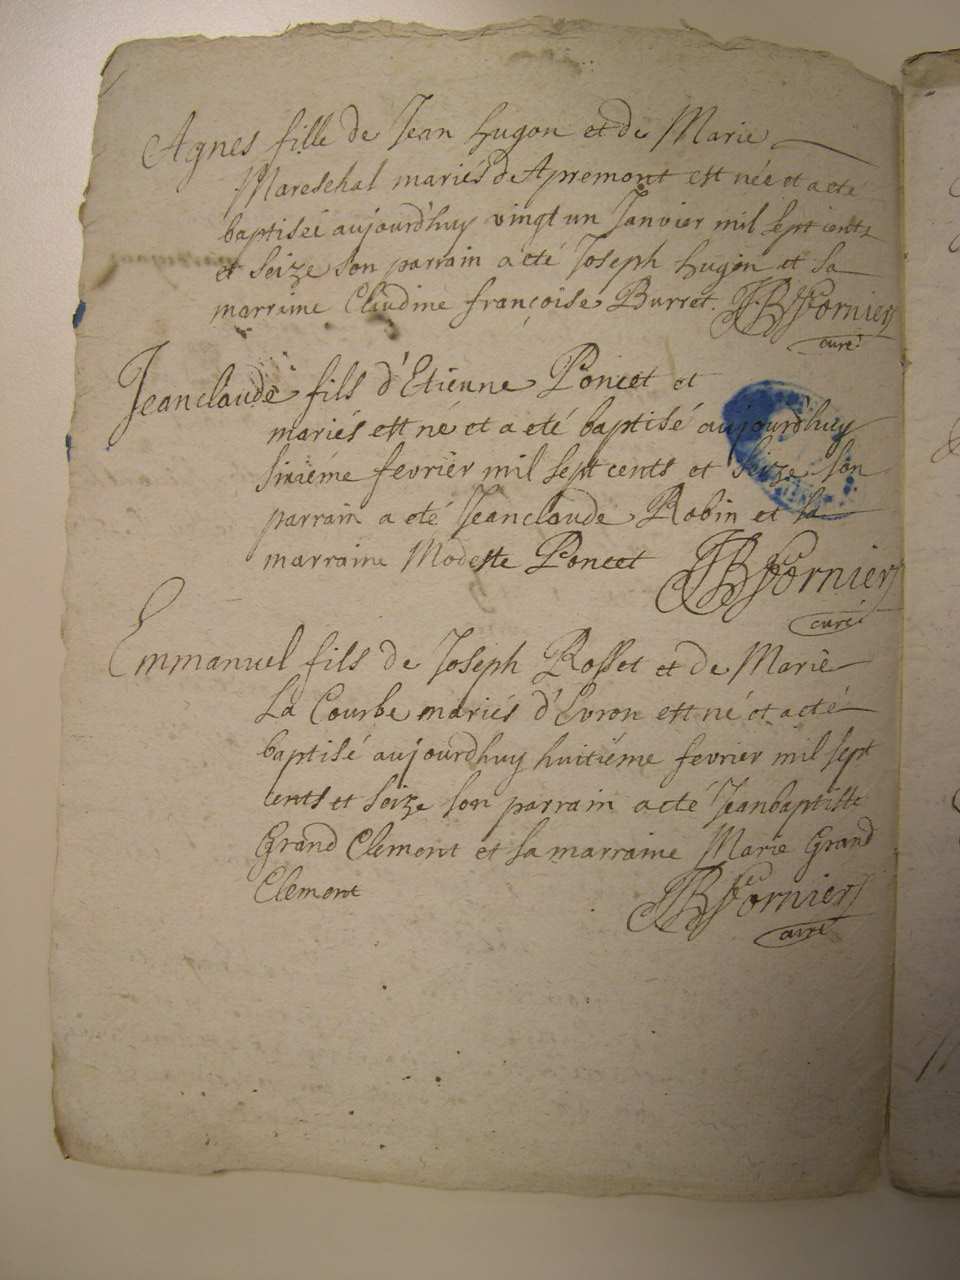 Agnes fille de Jean hugon et de Marie
Mareschal mariés d'Apremont est née et a eté
baptiseé aujourd'huy vingt un Janvier mil sept cents
et seize son parrain a eté Joseph hugon et sa
marreine Claudine françoise Burret JB Fornier
curé
Jeanclaude fils d'Etienne Poncet et
mariés est né et a eté baptisé aujourd'huy
sixiéme fevrier mil sept cents et seize son
parrain a eté Jeanclaude Robin et sa
marraine Modeste Poncet JB Fornier
curé
Emmanuel fils de Joseph Rosset et de Marie
La Courbe mariés d'Evron est né et a eté
baptisé aujourdhuy huitiéme fevrier mil sept
cents et seize son parrain a eté Jeanbaptiste
Grand Clement et sa marraine Marie Grand
Clement JB Fornier
curé